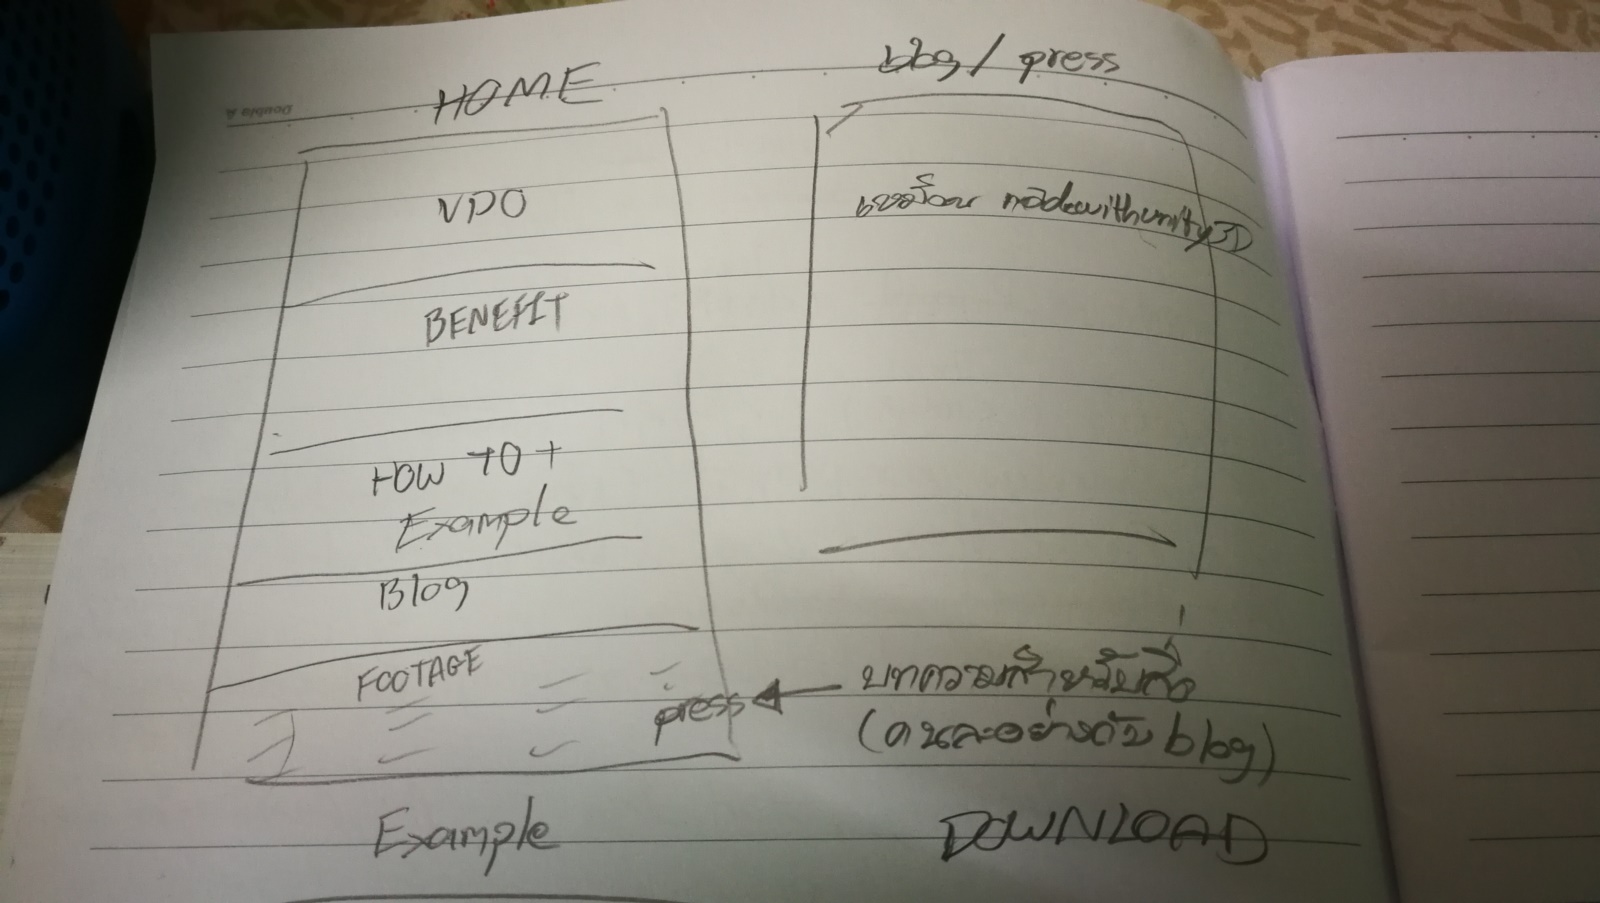 HOME
VDO
BENEFIT
HOW TO +
Example
Blog
FOOTAGE
press
Example
blog / press
เหมือน madewithunity3D
บทความสำหรับสื่อ
(คนละอย่างกับ blog)
DOWNLOAD
Double A